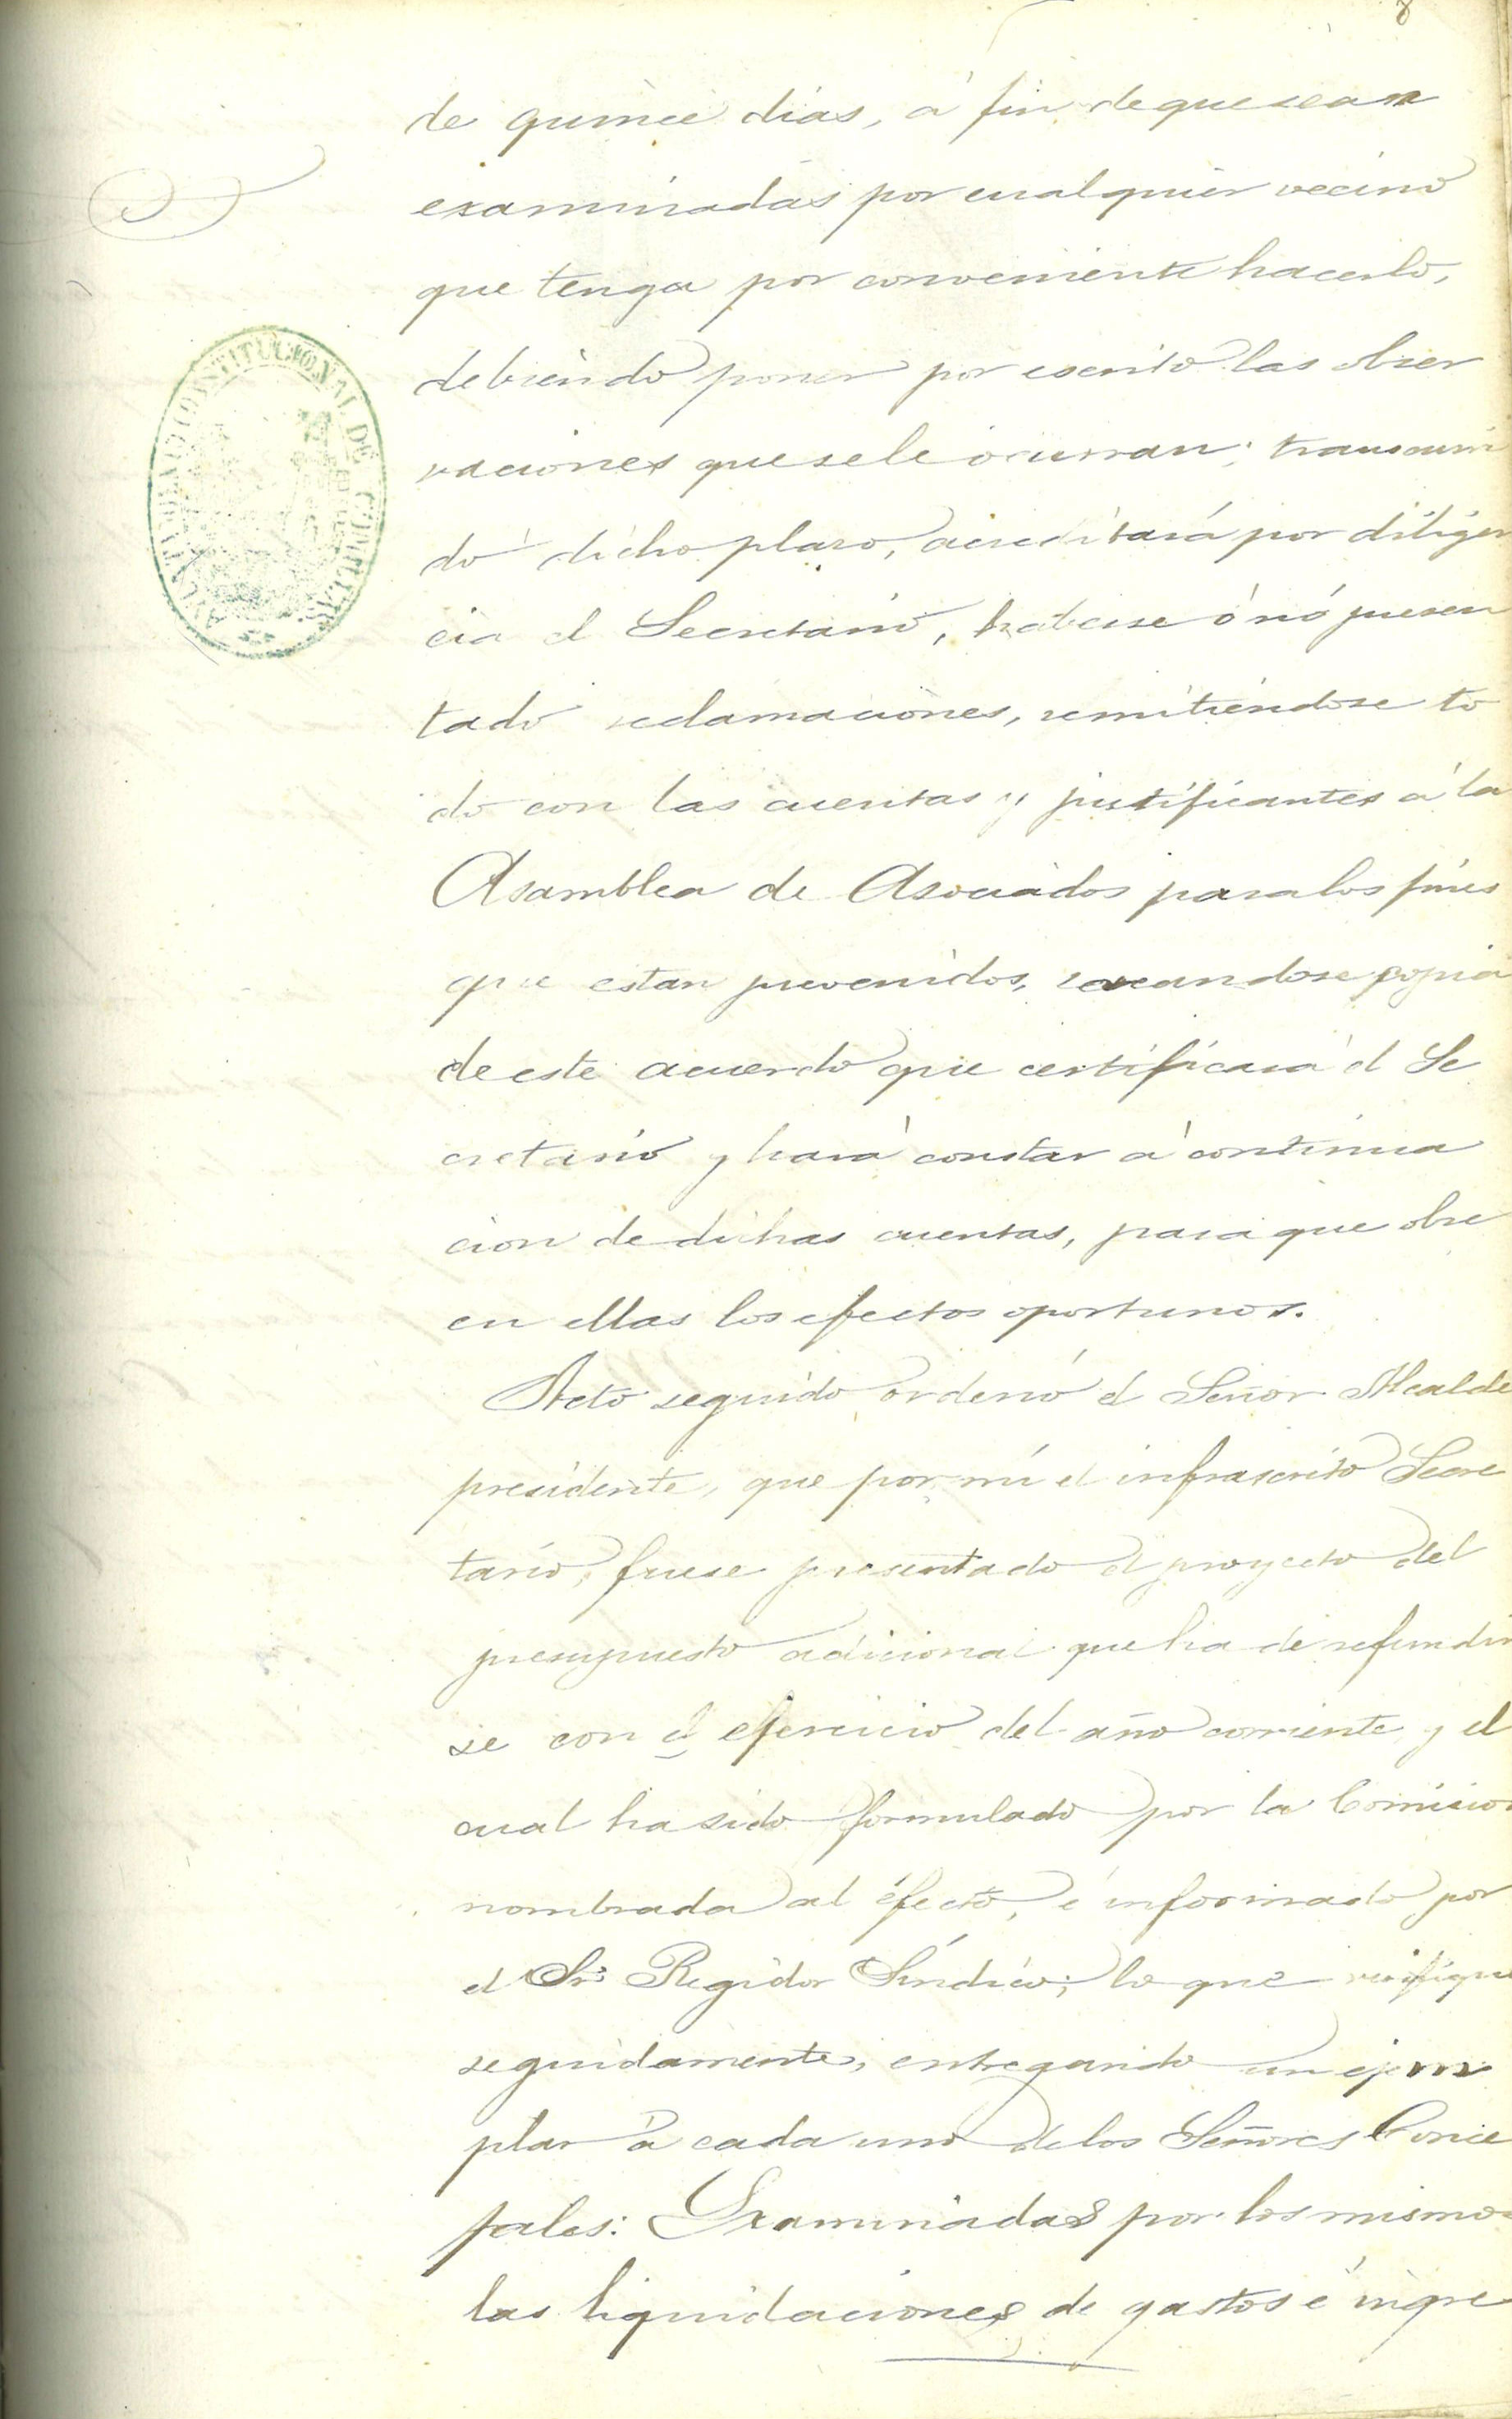 8
de quince dias, á fin de que sean
examinadas por cualquier vecino
que tenga por conveniente hacerlo,
debiendo poner por escrito las obser
vaciones que se le ocurran; trascurri
do dicho plazo, acreditará por diligen
cia el Secretario, haberse ó nó presen
tado reclamaciones, remitiéndose to
do con las cuentas y justificantes á la
Asamblea de Asociados para los fines
que estan prevenidos, sacandose copia
de este acuerdo que certificará el Se
cretario y hará constar á continua
cion de dichas cuentas, para que obre
en ellas los efectos oportunos.
Acto seguido ordenó el Señor Alcalde
presidente, que por mi el infrascrito Secre
tario, fuese presentado el proyecto del
presupuesto adicional que ha de refundir
se con el ejercicio del año corriente y el
cual ha sido formulado por la Comision
nombrada al efecto, é informado por
el Sr. Regidor Síndico; lo que verifiqué
seguidamente, entregando un ejem
plar á cada uno de los Señores Conce
jales: Examinadas por los mismos
las liquidaciones de gastos é ingre
CONSTITUCIONAL DE